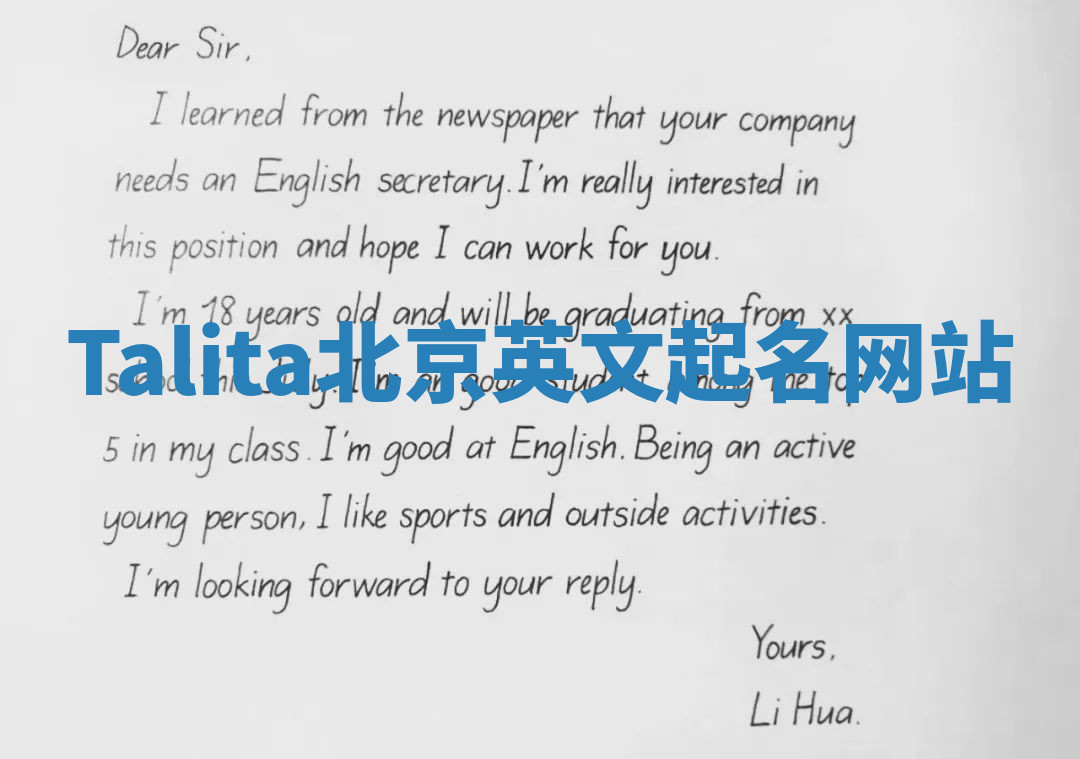 Dear Sir,
I learned from the newspaper that your company
needs an English secretary. I'm really interested in
this position and hope I can work for you.
I'm 18 years old and will be graduating from xx
Talita北京英文起名网站
school this July. I'm an good student among the top
5 in my class. I'm good at English. Being an active
young person, I like sports and outside activities.
I'm looking forward to your reply.
Yours,
Li Hua.